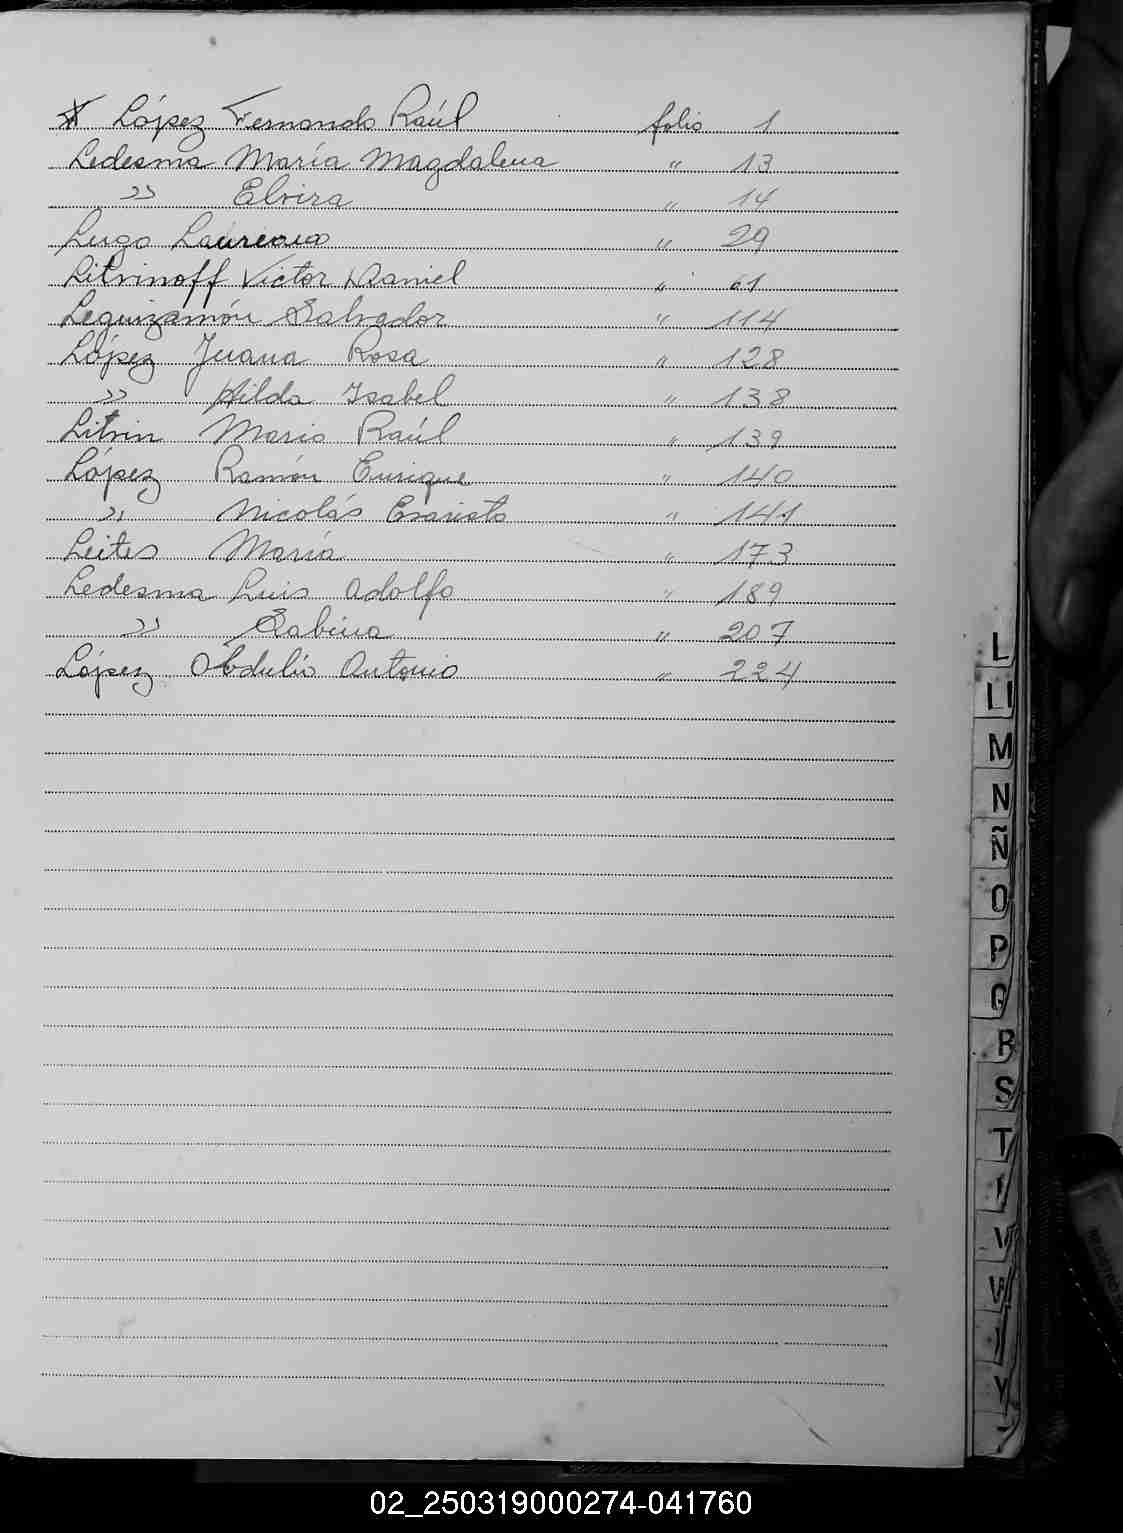 López Fernando Raúl folio 1
Ledesma María Magdalena " 13
" Elvira " 14
Lugo Laureano " 29
Litvinoff Victor Daniel " 61
Leguizamón Salvador " 114
López Juana Rosa " 128
" Hilda Isabel " 138
Litvin Mario Raúl " 139
López Ramón Enrique " 140
" Nicolás Evaristo " 141
Leites María " 173
Ledesma Luis Adolfo " 189
" Sabina " 207
López Obdulio Antonio " 224
L
Ll
M
N
Ñ
O
P
Q
R
S
T
V
W
Y
02_250319000274-041760